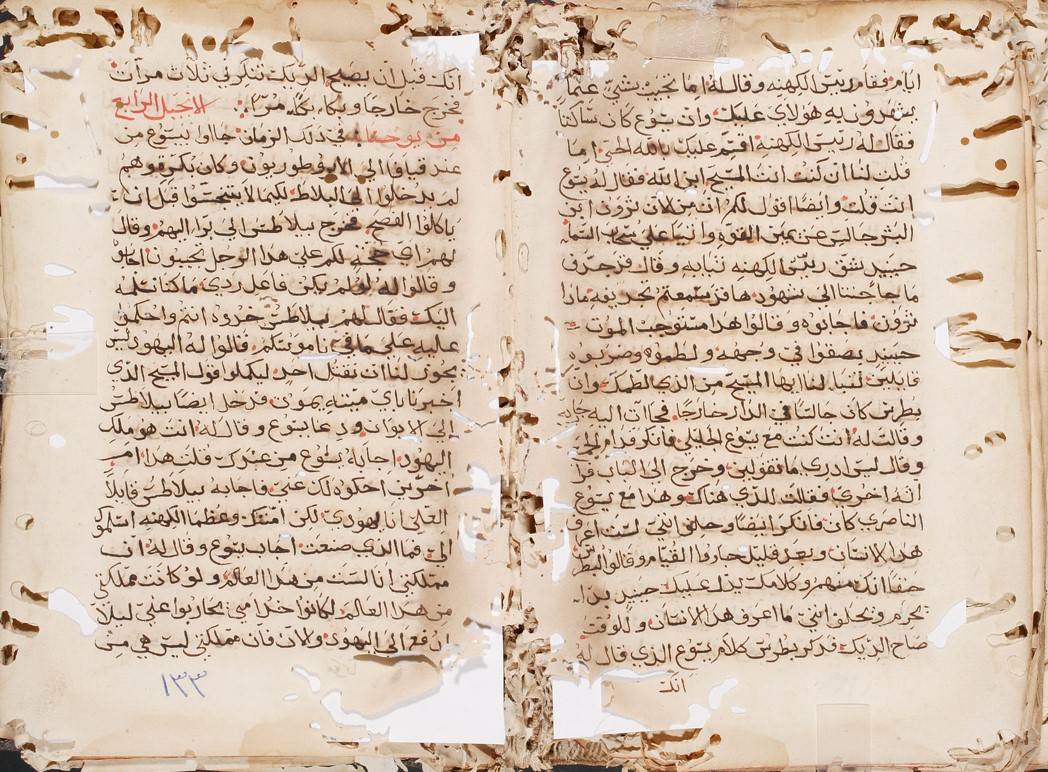 ايام فقام رييس الكهنه وقال له اما تجيب بشي عما
يشهدون به هولاي عليك وان يسوع كان ساكتا
فقال له رييس الكهنه اقسم عليك بالله الحي اما
قلت لنا ان كنت انت المسيح ابن الله فقال له يسوع
انت قلت وايضا اقول لكم ان من الان ترون ابن
البشر جالس عن يمين القوه واتيا على سحاب السما
حينيد شق رييس الكهنه تيابه وقال قد جدف
ما حاجتنا الى شهود ها قد سمعتم تجديفه مادا
ترون فاجابوه وقالوا هدا مستوجب الموت
حينيد بصقوا في وجهه ولطموه وضربوه
قايلين تنبا لنا ايها المسيح من الدي لطمك وان
بطرس كان جالسا في الدار خارجا فجات اليه جاريه
وقالت له انت كنت مع يسوع الجليلي فانكر قدام الجميع
وقال ليس ادري ما تقولين وخرج الى الباب فراته
اخرى فقالت للدي هناك وهدا مع يسوع
الناصري كان فانكر ايضا وحلف انني لست اعرف
هدا الانسان وبعد قليل جاوا القيام وقالوا لبطرس
حقا انك منهم وكلامك يدل عليك حينيد بدا
يحرم ويحلف انني ما اعرف هدا الانسان وللوقت
صاح الديك فدكر بطرس كلام يسوع الذي قال له
انك
انك قبل ان يصيح الديك تنكرني ثلاث مرات
فخرج خارجا وبكا بكاء مرا الانجيل الرابع
من يوحنا في دلك الزمان جاوا بيسوع من
عند قيافا الى الابروطوريون وكان بكر وهم
لم يدخلوا الى البلاط لكيما لا يتنجسوا قبل ان
ياكلوا الفصح فخرج بيلاطس الى برا اليهم وقال
لهم اي حجه لكم على هدا الرجل تجيبون اجابوا
وقالوا له لو لم يكن فاعل ردي ما كنا نسلمه
اليك فقال لهم بيلاطس خدوه انتم واحكموا
عليه على ما في ناموسكم قالوا له اليهود ليس
يجوز لنا ان نقتل احد ليكملوا قول المسيح الذي
اخبر باي ميتة يموت فدخل ايضا بيلاطس
الى الايوان ودعا يسوع وقال له انت هو ملك
اليهود اجابه يسوع من عندك قلت هدا ام
اخرين احكوه لك عني فاجابه بيلاطس قايلا
العلي انا يهودي لكن امتك وعظما الكهنه اسلموك
الي فما الدي صنعت اجاب يسوع وقال له ان
مملكتي انا ليست من هدا العالم ولو كانت مملكتي
من هدا العالم لكانوا خدامي يحاربوا علي ليلا
ادفع الى اليهود ولان فان مملكتي ليس هي من
١٣٣